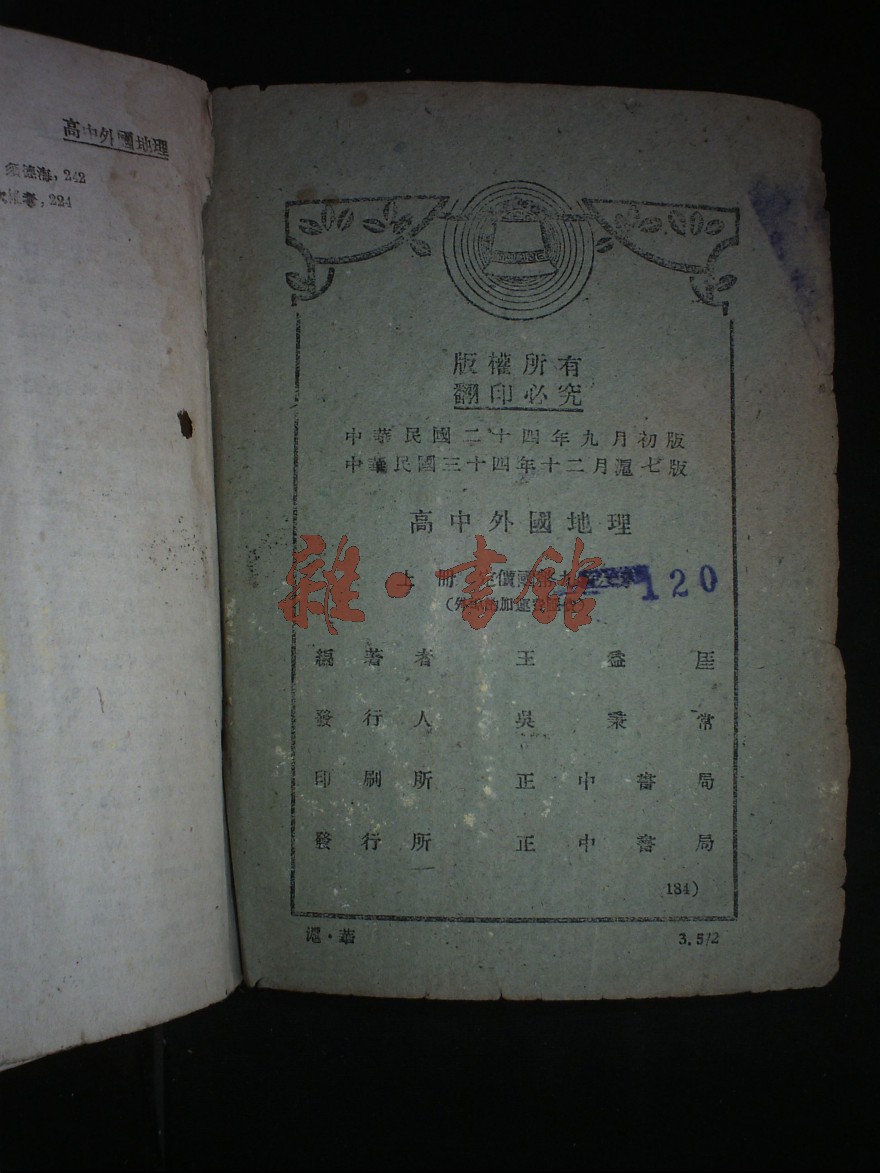 高中外國地理
海, 242
, 224
版權所有
翻印必究
中華民國二十四年九月初版
中華民國三十四年十二月滬七版
高中外國地理
上冊 定價國幣 120
雜·書館
編著者 王益厓
發行人 吳秉常
印刷所 正中書局
發行所 正中書局
184)
滬·華 3.5/2